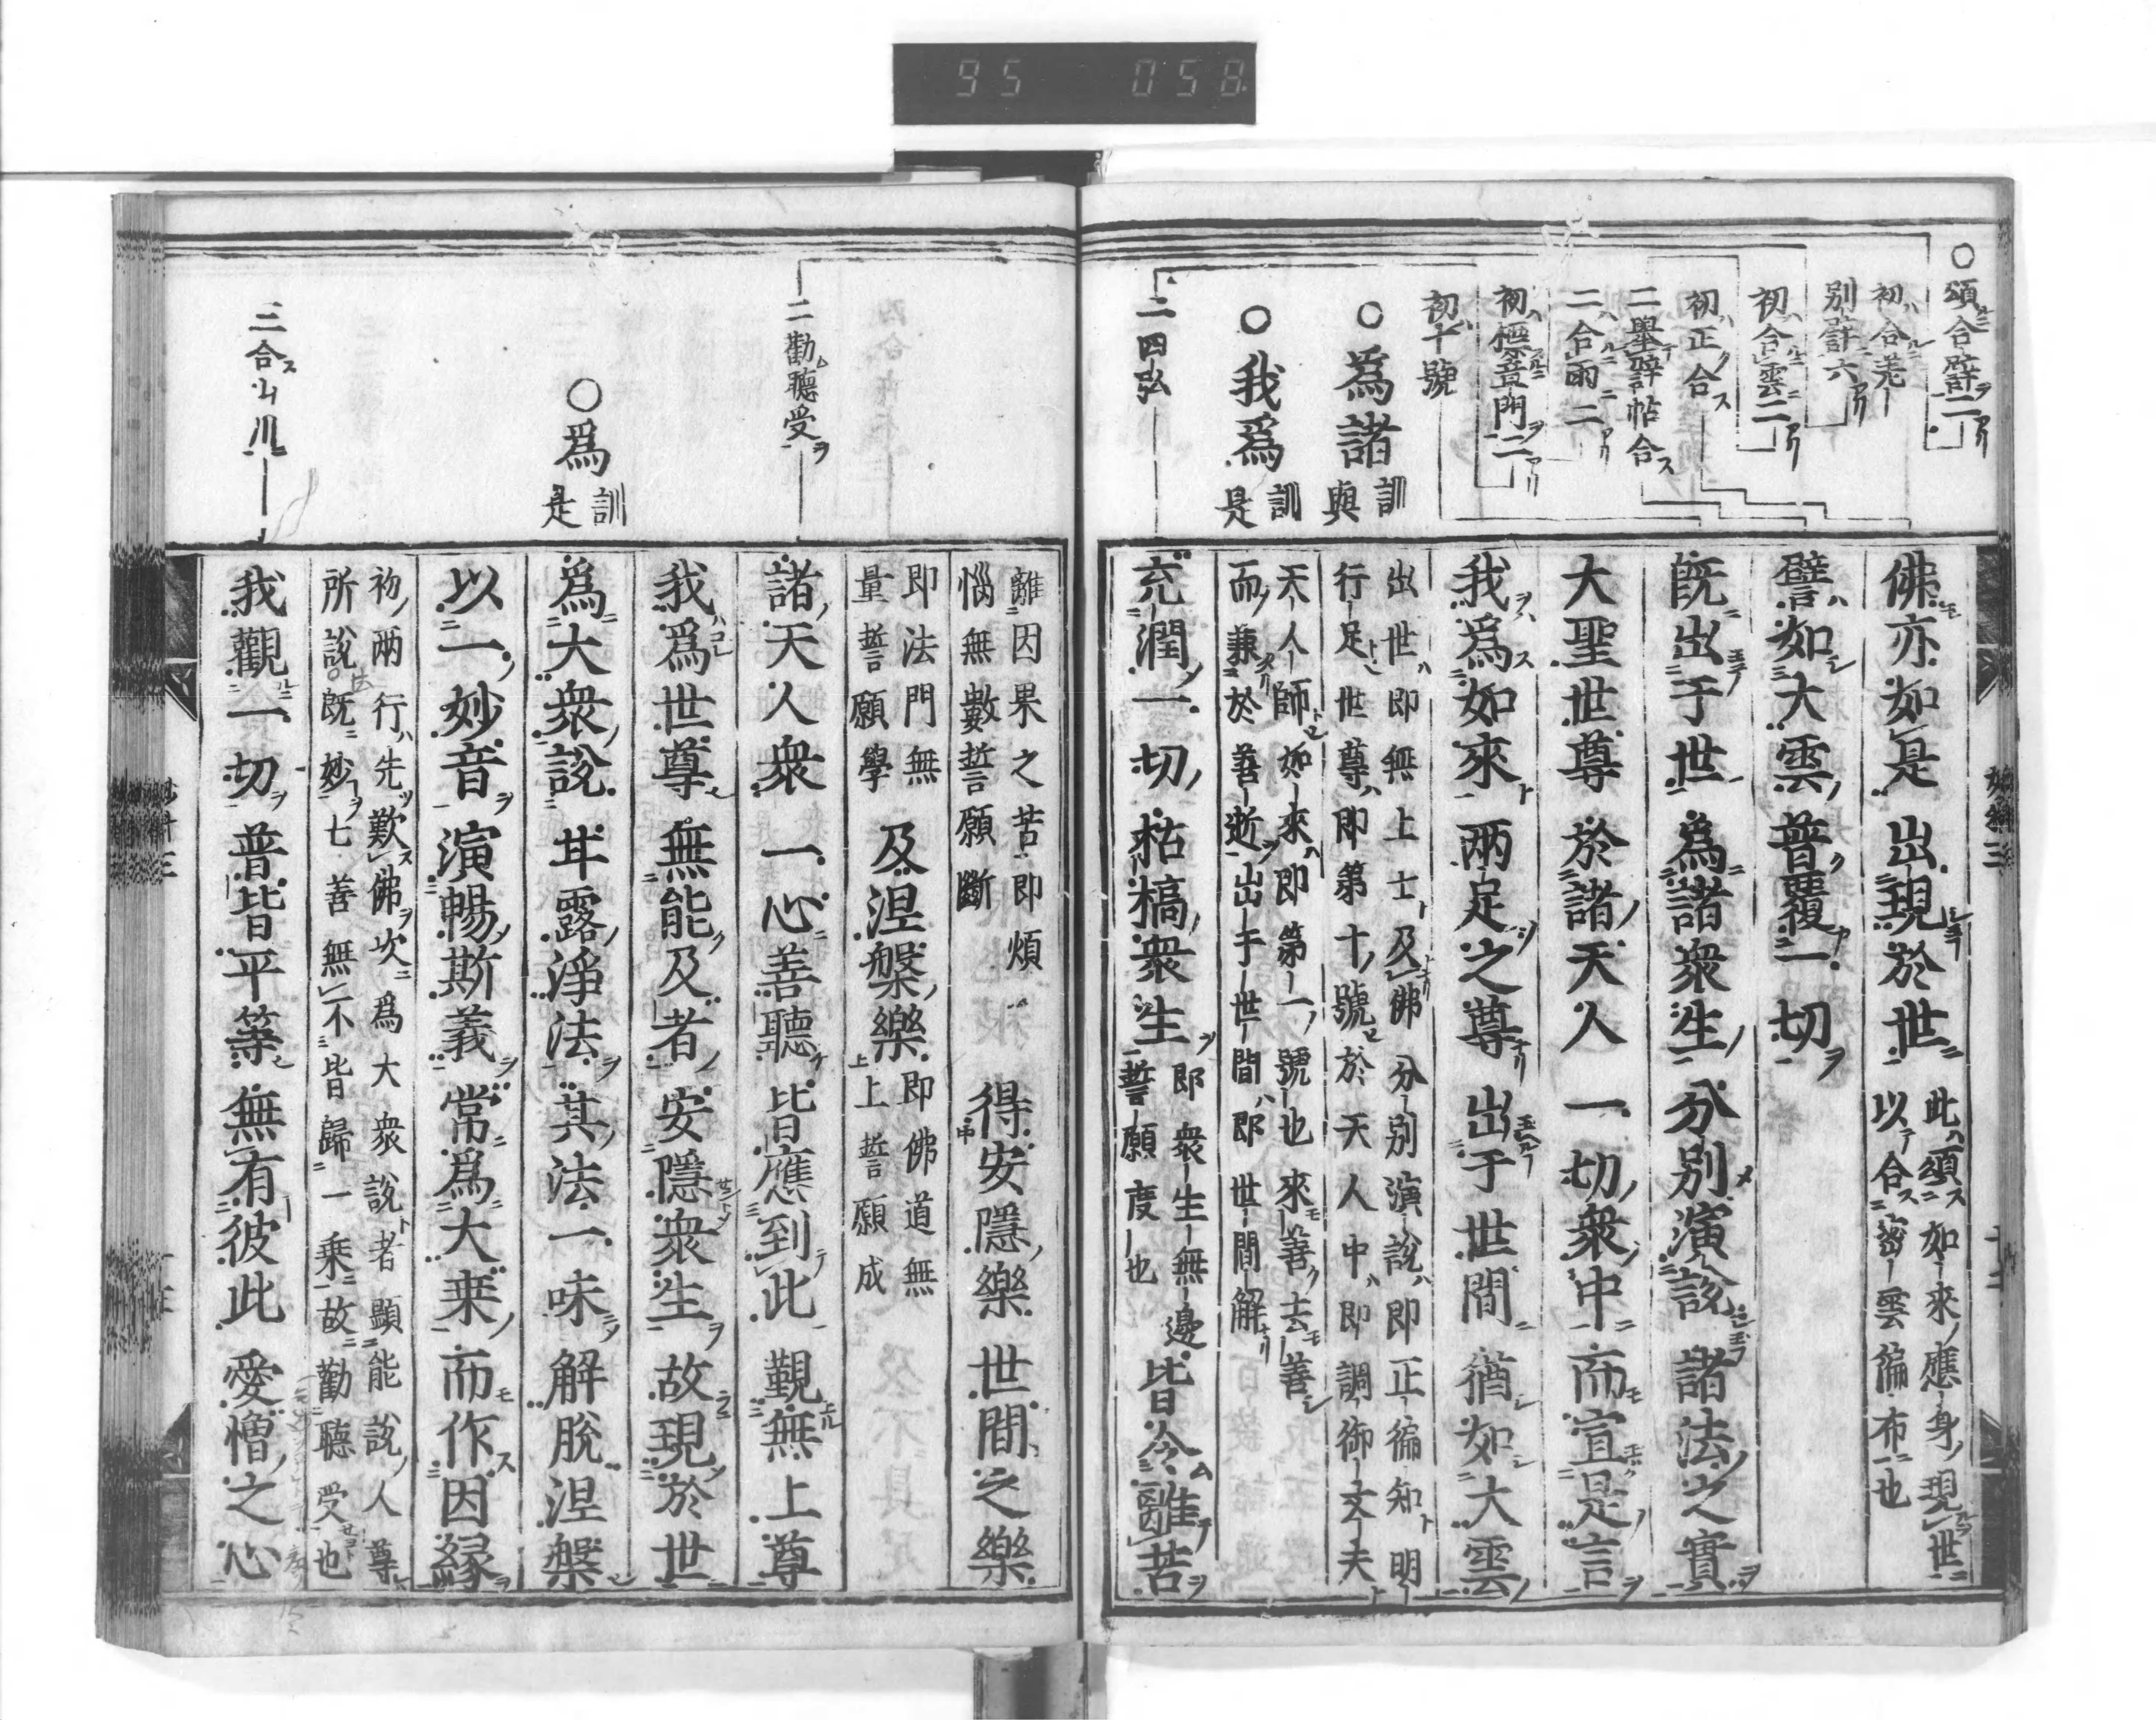 95 058
○頌合譬二
初合㳒
別譬六
初合雲二
初正合
二舉譬帖合
二合雨二
初標章門二
初十號
○為諸 訓與
○我為 訓是
二四弘
佛亦如是 出現於世 此頌如來應身現世
以合密雲徧布也
譬如大雲 普覆一切
既出于世 為諸衆生 分別演說 諸法之實
大聖世尊 於諸天人 一切衆中 而宣是言
我為如來 兩足之尊 出于世間 猶如大雲
出世即無上士及佛分別演說即正徧知明
行足世尊即第十號於天人中即調御丈夫
天人師如來即第一號也來善去善
而兼於善逝出于世間即世間解
充潤一切 枯槁衆生 即衆生無邊
誓願度也 皆令離苦
二勸聽受
○為 訓是
三合山川
離因果之苦即煩
惱無數誓願斷 得安隱樂 世間之樂
即法門無
量誓願學 及涅槃樂 即佛道無
上上誓願成
諸天人衆 一心善聽 皆應到此 覲無上尊
我為世尊 無能及者 安隱衆生 故現於世
為大衆說 甘露淨法 其法一味 解脫涅槃
以一妙音 演暢斯義 常為大乗 而作因緣
初兩行先歎佛次為大衆說者顯能說人尊
所說既妙七善無不皆歸一乗故勸聽受也
我觀一切 普皆平等 無有彼此 愛憎之心